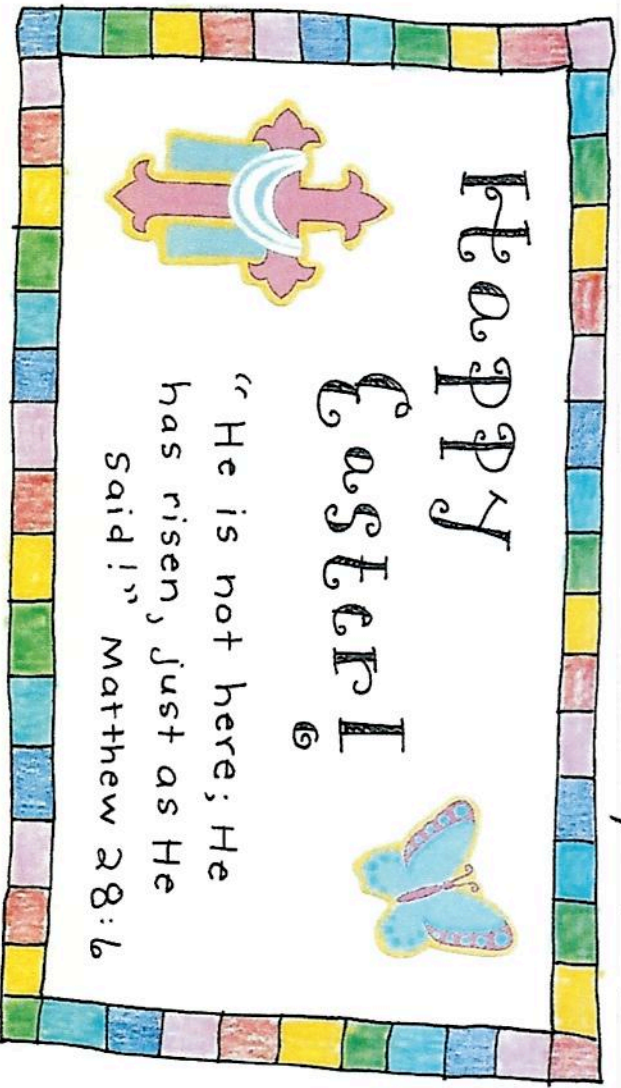 Happy
Easter!
"He is not here; He
has risen, just as He
said!" Matthew 28:6